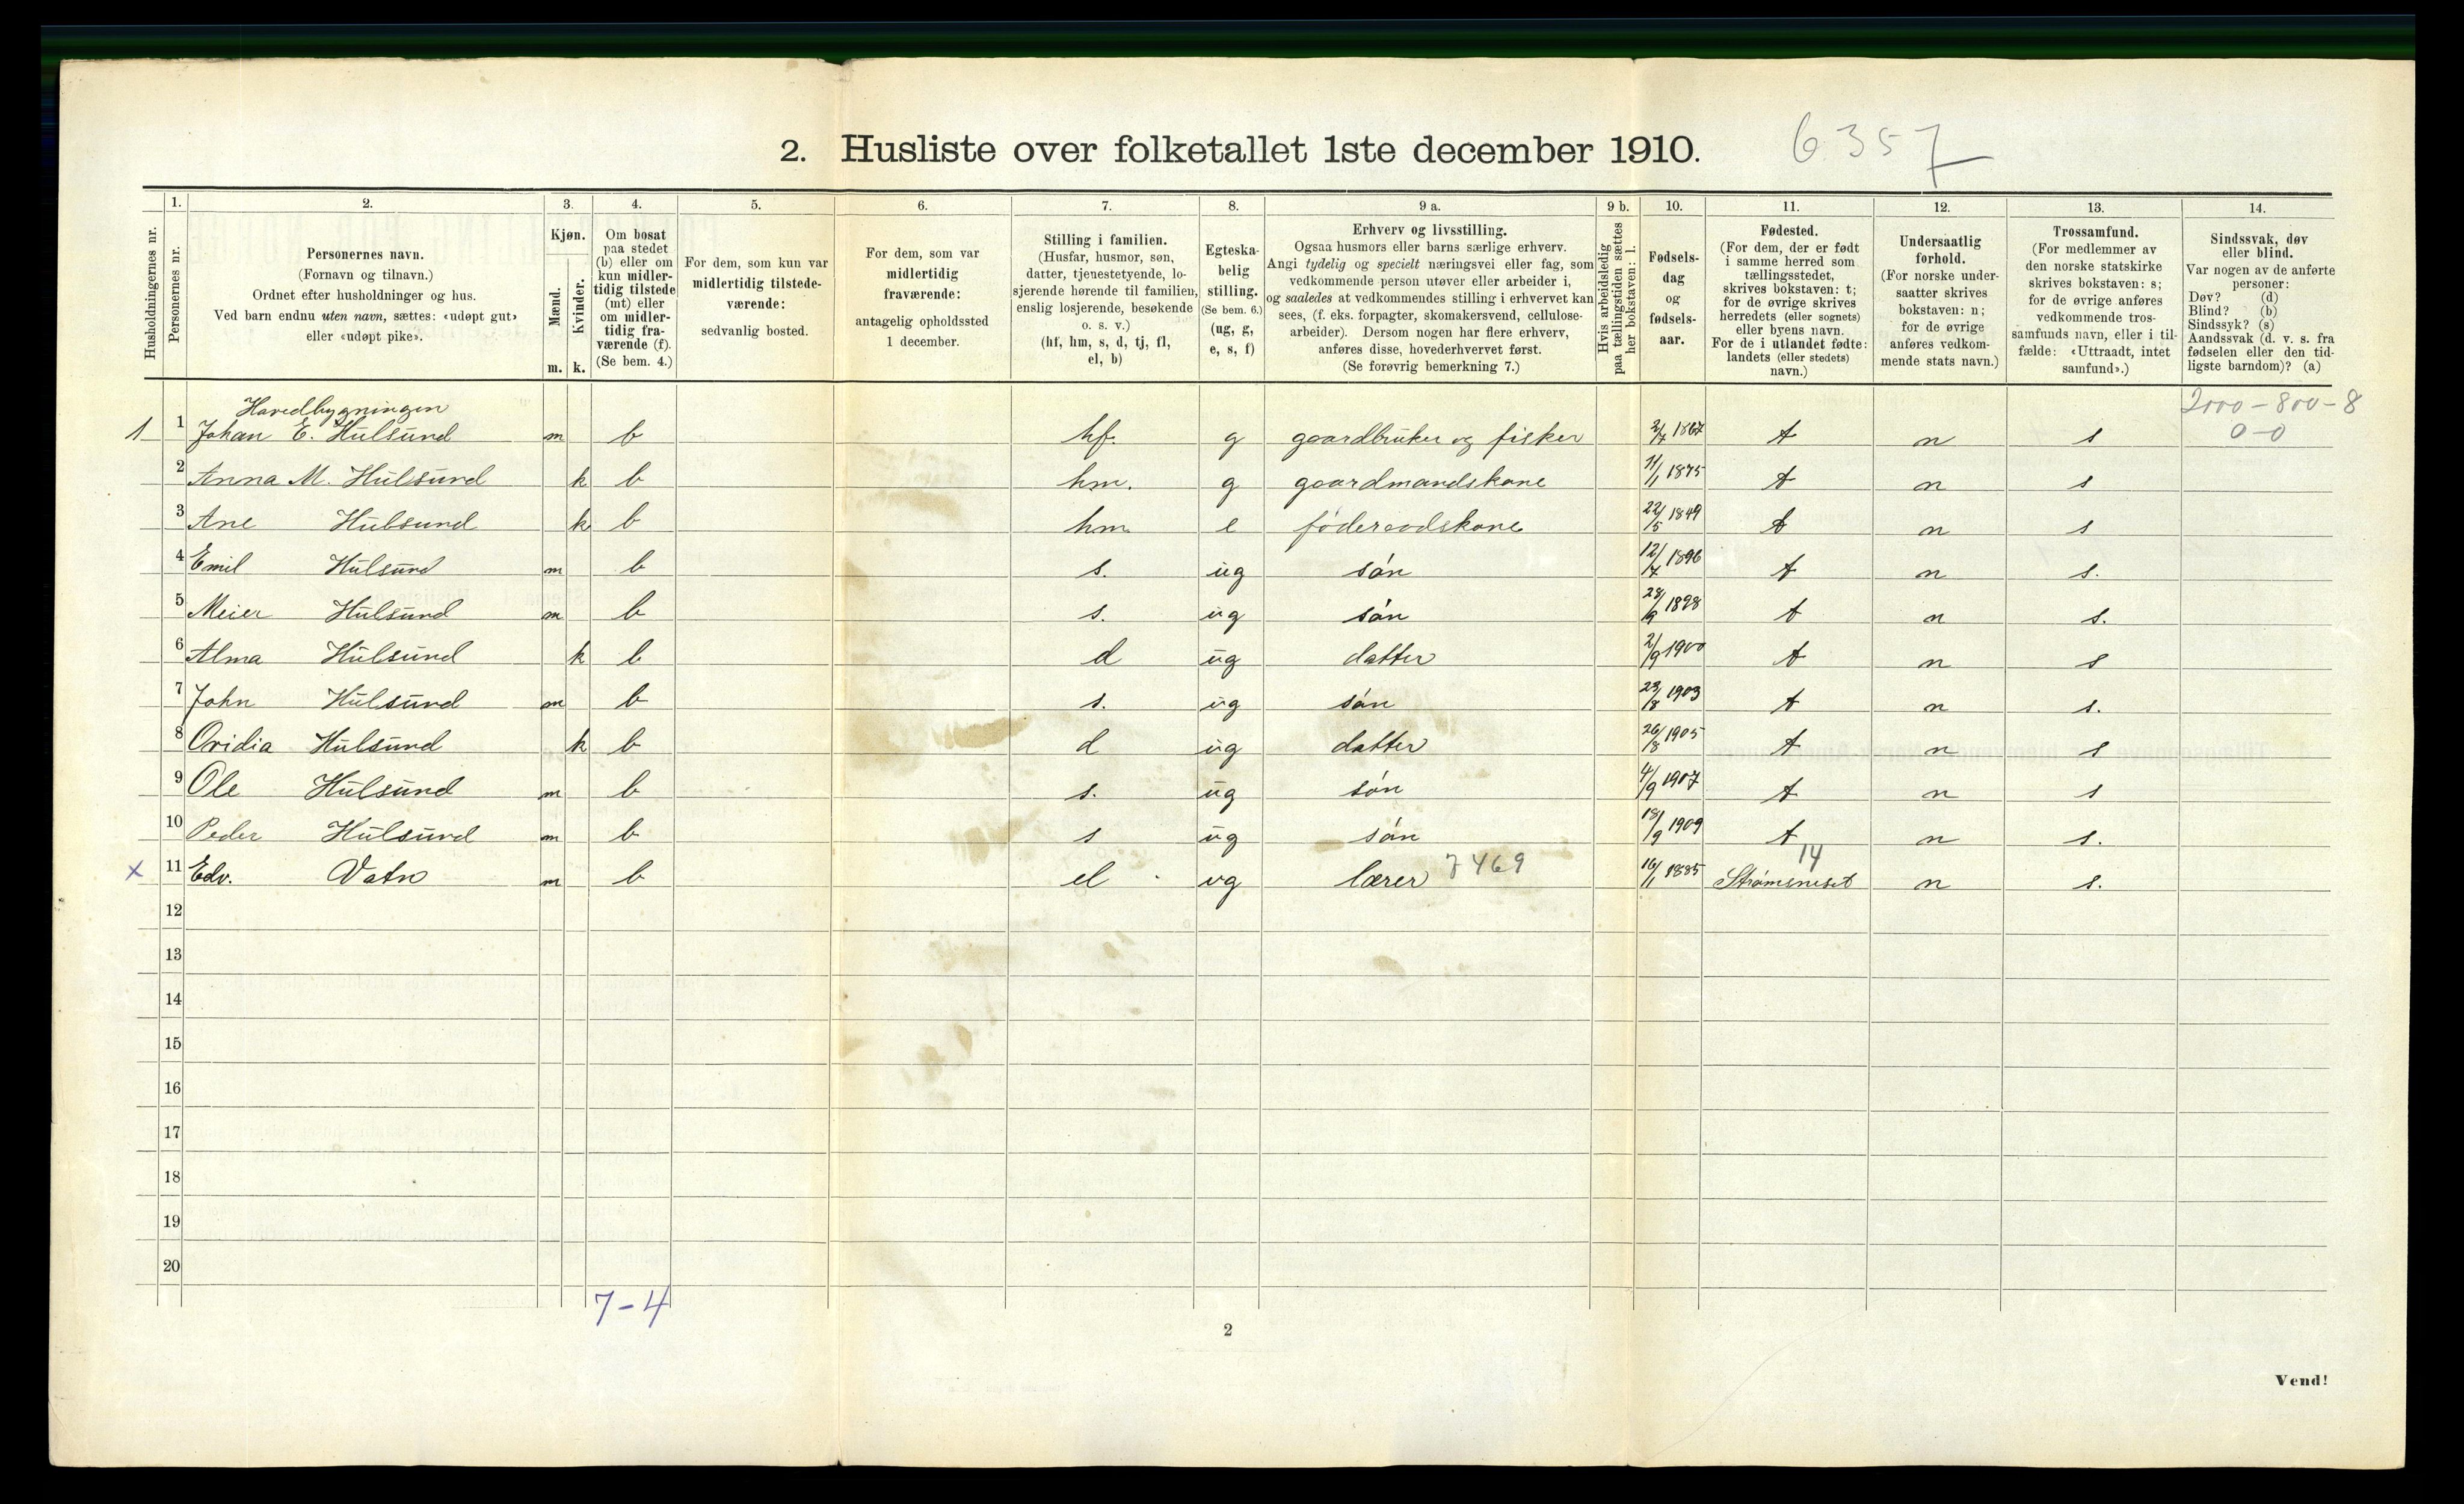 2. Husliste over folketallet 1ste december 1910. 6357
1. 2. 3. 4. 5. 6. 7. 8. 9 a. 9 b. 10. 11. 12. 13. 14.
Husholdningernes nr.
Personernes nr.
Personernes navn.
(Fornavn og tilnavn.)
Ordnet efter husholdninger og hus.
Ved barn endnu uten navn, sættes: «udøpt gut»
eller «udøpt pike».
Kjøn.
Mænd.
Kvinder.
m. k.
Om bosat
paa stedet
(b) eller om
kun midler-
tidig tilstede
(mt) eller
om midler-
tidig fra-
værende (f).
(Se bem. 4.)
For dem, som kun var
midlertidig tilstede-
værende:
sedvanlig bosted.
For dem, som var
midlertidig
fraværende:
antagelig opholdssted
1 december.
Stilling i familien.
(Husfar, husmor, søn,
datter, tjenestetyende, lo-
sjerende hørende til familien,
enslig losjerende, besøkende
o. s. v.)
(hf, hm, s, d, tj, fl,
el, b)
Egteska-
belig
stilling.
(Se bem. 6.)
(ug, g,
e, s, f)
Erhverv og livsstilling.
Ogsaa husmors eller barns særlige erhverv.
Angi tydelig og specielt næringsvei eller fag, som
vedkommende person utøver eller arbeider i,
og saaledes at vedkommendes stilling i erhvervet kan
sees, (f. eks. forpagter, skomakersvend, cellulose-
arbeider). Dersom nogen har flere erhverv,
anføres disse, hovederhvervet først.
(Se forøvrig bemerkning 7.)
Hvis arbeidsledig
paa tællingstiden sættes
her bokstaven: l.
Fødsels-
dag
og
fødsels-
aar.
Fødested.
(For dem, der er født
i samme herred som
tællingsstedet,
skrives bokstaven: t;
for de øvrige skrives
herredets (eller sognets)
eller byens navn.
For de i utlandet fødte:
landets (eller stedets)
navn.)
Undersaatlig
forhold.
(For norske under-
saatter skrives
bokstaven: n;
for de øvrige
anføres vedkom-
mende stats navn.)
Trossamfund.
(For medlemmer av
den norske statskirke
skrives bokstaven: s;
for de øvrige anføres
vedkommende tros-
samfunds navn, eller i til-
fælde: «Uttraadt, intet
samfund».)
Sindssvak, døv
eller blind.
Var nogen av de anførte
personer:
Døv? (d)
Blind? (b)
Sindssyk? (s)
Aandssvak (d. v. s. fra
fødselen eller den tid-
ligste barndom)? (a)
Hovedbygningen 2000-800-8
1 1 Johan E. Hulsund m b hf. g gaardbruker og fisker 2/7 1867 t n s 0-0
2 Anna M. Hulsund k b hm. g gaardmandskone 11/1 1875 t n s
3 Ane Hulsund k b hm e føderaadskone 22/5 1849 t n s
4 Emil Hulsund m b s. ug søn 12/7 1896 t n s.
5 Meier Hulsund m b s. ug søn 28/9 1898 t n s.
6 Alma Hulsund k b d ug datter 2/9 1900 t n s
7 John Hulsund m b s. ug søn 23/8 1903 t n s.
8 Ovidia Hulsund k b d ug datter 26/8 1905 t n s
9 Ole Hulsund m b s. ug søn 4/9 1907 t n s
10 Peder Hulsund m b s ug søn 18/9 1909 t n s.
x 11 Edv. Vatn m b el ug lærer 7469 16/1 1885 Strømsneset 14 n s.
12
13
14
15
16
17
18
19
20
7-4
2
Vend!